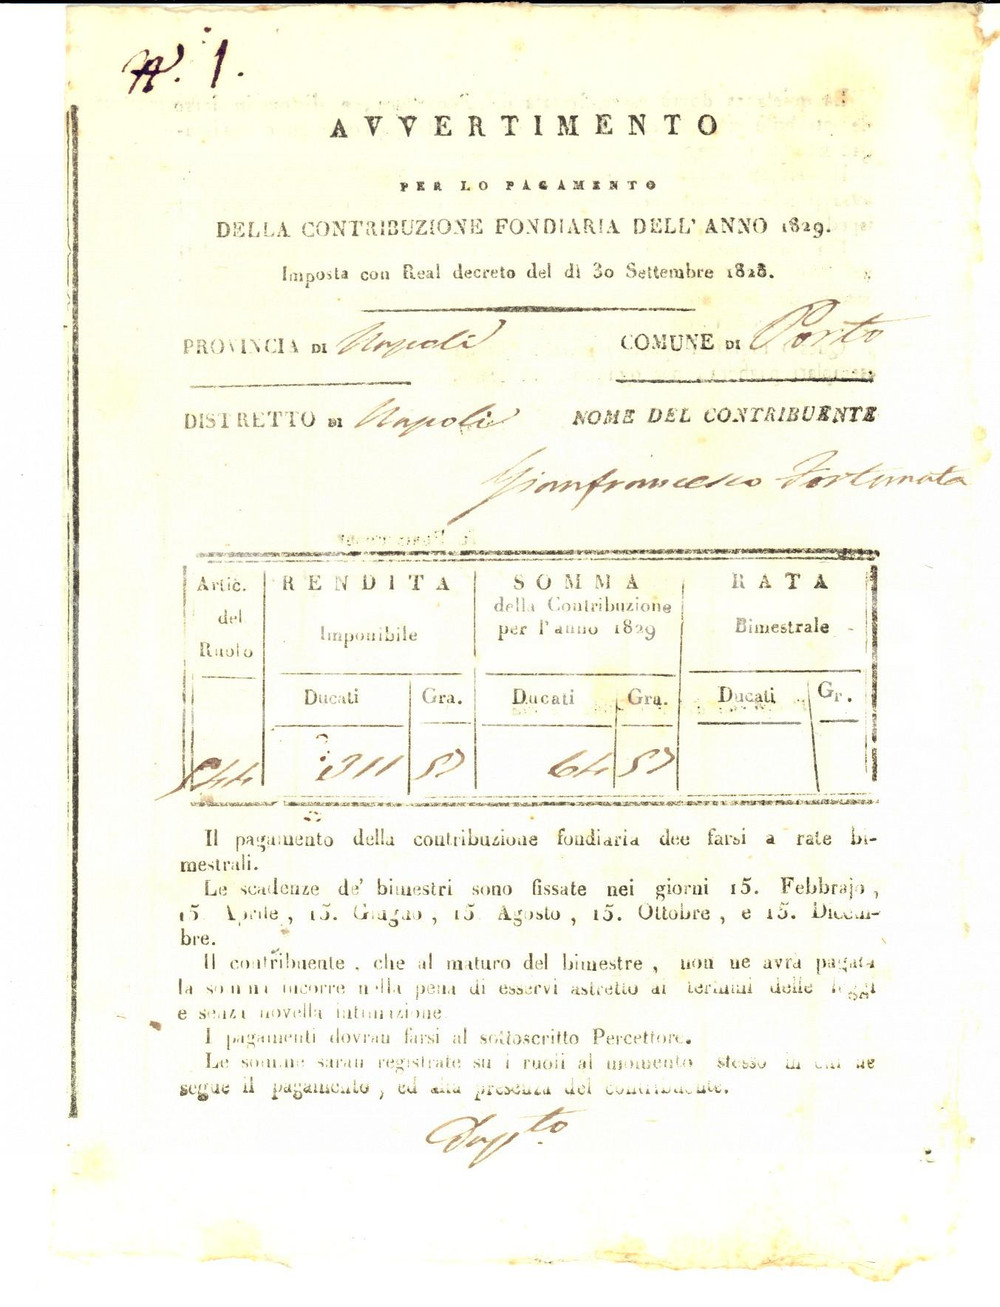 N. 1.
AVVERTIMENTO
PER LO PAGAMENTO
DELLA CONTRIBUZIONE FONDIARIA DELL' ANNO 1829.
Imposta con Real decreto del dì 30 Settembre 1828.
PROVINCIA DI Napoli COMUNE DI Porto
DISTRETTO DI Napoli NOME DEL CONTRIBUENTE
Gianfrancesco Fortunata
Artic. del Ruolo
RENDITA
Imponibile
SOMMA
della Contribuzione
per l'anno 1829
RATA
Bimestrale
Ducati Gra. Ducati Gra. Ducati Gr.
544 311 57 64 57
Il pagamento della contribuzione fondiaria dee farsi a rate bi-
mestrali.
Le scadenze de' bimestri sono fissate nei giorni 15. Febbrajo,
15. Aprile, 15. Giugno, 15. Agosto, 15. Ottobre, e 15. Dicem-
bre.
Il contribuente, che al maturo del bimestre, non ne avrà pagata
la somma incorre nella pena di esservi astretto ai termini delle leggi
e senza novella intimazione.
I pagamenti dovran farsi al sottoscritto Percettore.
Le somme saran registrate su i ruoli al momento stesso in cui ne
segue il pagamento, ed alla presenza del contribuente.